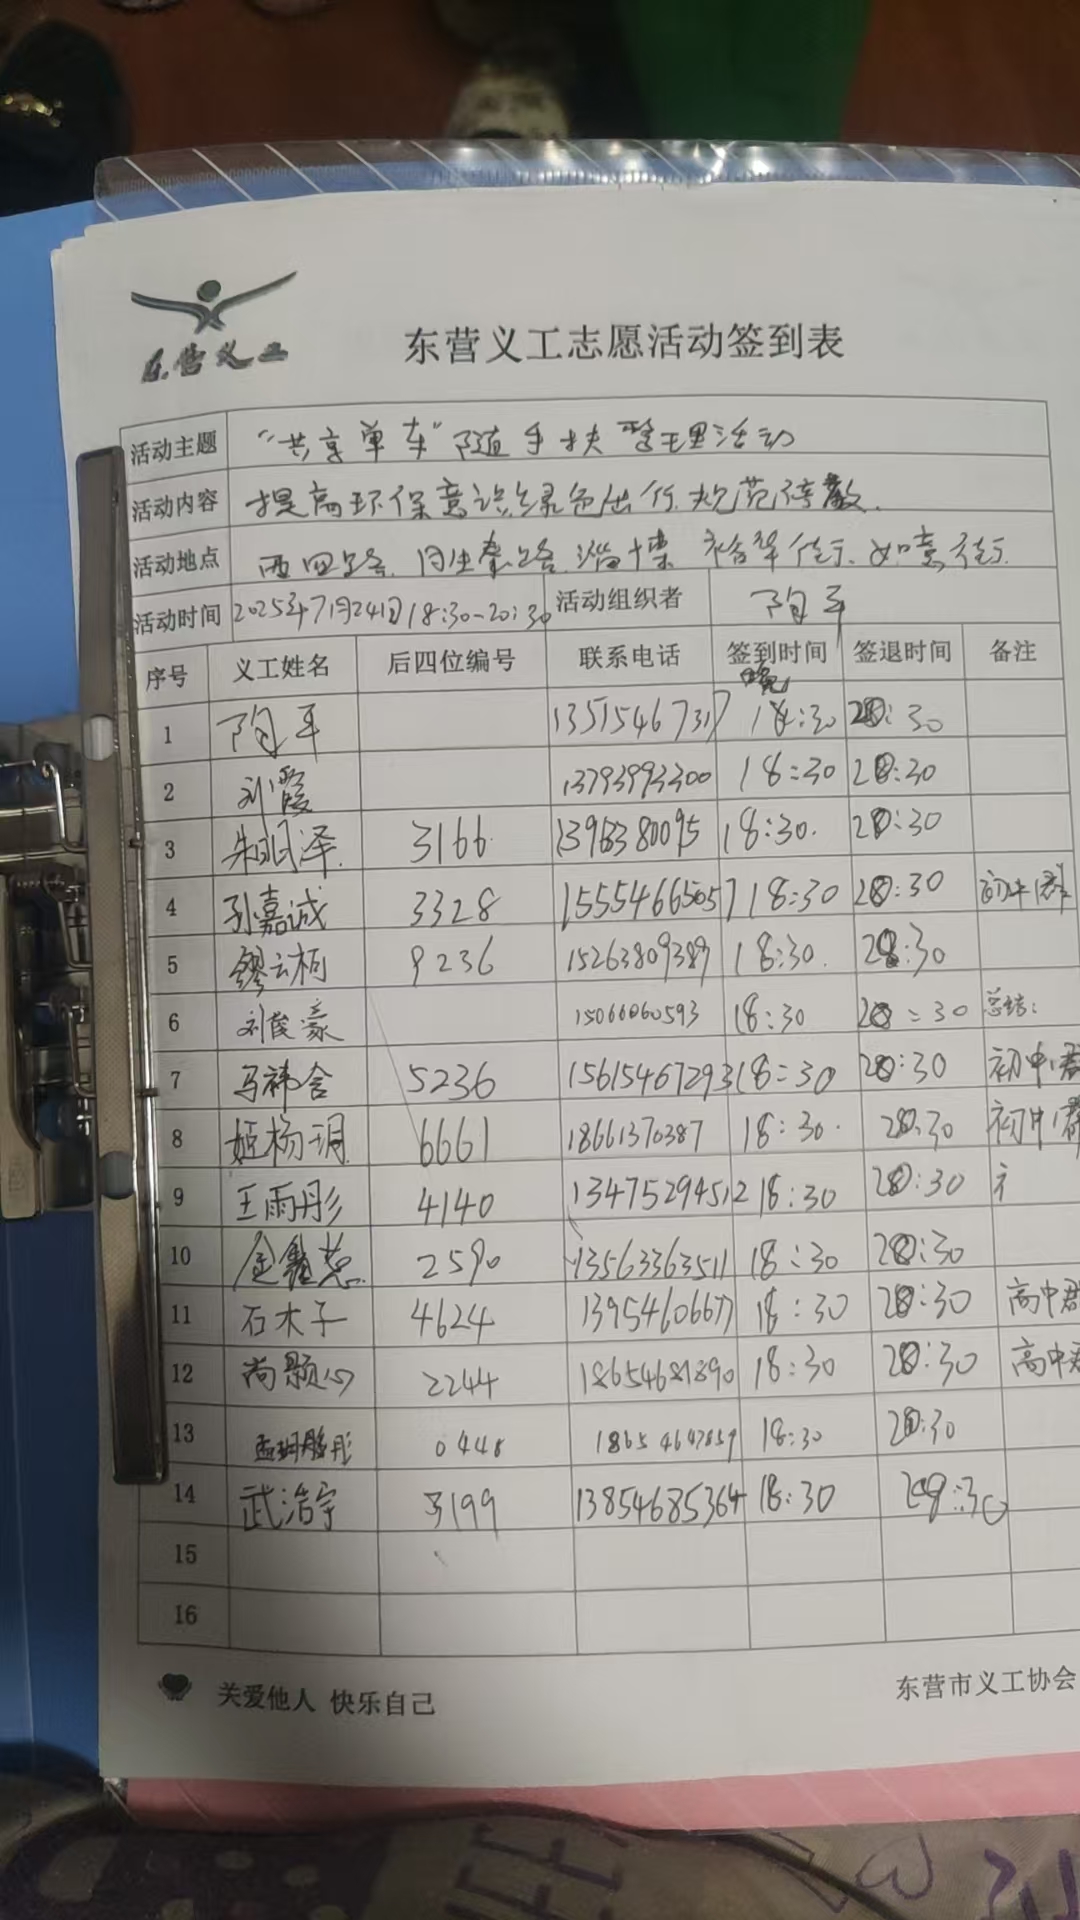 东营义工
东营义工志愿活动签到表
活动主题 “共享单车”随手扶 整理活动
活动内容 提高环保意识绿色出行.规范停放.
活动地点 西四路.
活动时间 2025年7月24日18:30-20:30 活动组织者 陶平
序号 义工姓名 后四位编号 联系电话 签到时间 签退时间 备注
晚
1 陶平 13515467317 18:30 20:30
2 刘霞 13793993300 18:30 20:30
3 朱明泽 3166 18:30. 20:30
4 孙嘉诚 3328 15554665057 18:30 20:30 初中1群
5 缪云柯 9236 15263809389 18:30. 20:30
6 刘俊豪 15066060593 18:30 20:30
7 马祎含 5236 15615467293 18:30 20:30 初中1群
8 姬杨玥 6661 18661370387 18:30. 20:30 初中1群
9 王雨彤 4140 13475294512 18:30 20:30
10 2590 13563363511 18:30 20:30
11 石木子 4624 13954606677 18:30 20:30 高中群
12 尚颢心 2244 18654681890 18:30 20:30 高中
13 0448 18:30 20:30
14 武浩宇 3199 13854685364 18:30 20:30
15
16
关爱他人 快乐自己
东营市义工协会